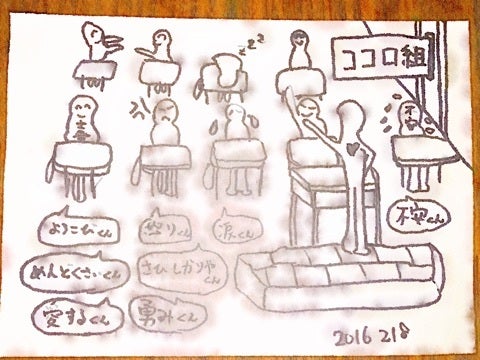 zzz
ココロ組
不安くん
よろこびくん
怒りくん
涙くん
めんどくさいくん
さびしがりやくん
愛するくん
勇みくん
2016 218